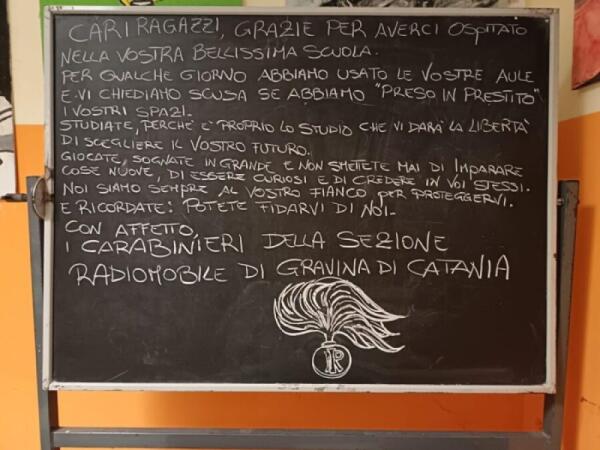 CARI RAGAZZI, GRAZIE PER AVERCI OSPITATO
NELLA VOSTRA BELLISSIMA SCUOLA.
PER QUALCHE GIORNO ABBIAMO USATO LE VOSTRE AULE
E VI CHIEDIAMO SCUSA SE ABBIAMO "PRESO IN PRESTITO"
I VOSTRI SPAZI.
STUDIATE, PERCHE' E' PROPRIO LO STUDIO CHE VI DARA' LA LIBERTA'
DI SCEGLIERE IL VOSTRO FUTURO.
GIOCATE, SOGNATE IN GRANDE E NON SMETTETE MAI DI IMPARARE
COSE NUOVE, DI ESSERE CURIOSI E DI CREDERE IN VOI STESSI.
NOI SIAMO SEMPRE AL VOSTRO FIANCO PER PROTEGGERVI.
E RICORDATE: POTETE FIDARVI DI NOI.
CON AFFETTO,
I CARABINIERI DELLA SEZIONE
RADIOMOBILE DI GRAVINA DI CATANIA
RI